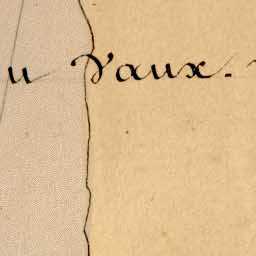 u Vaux.